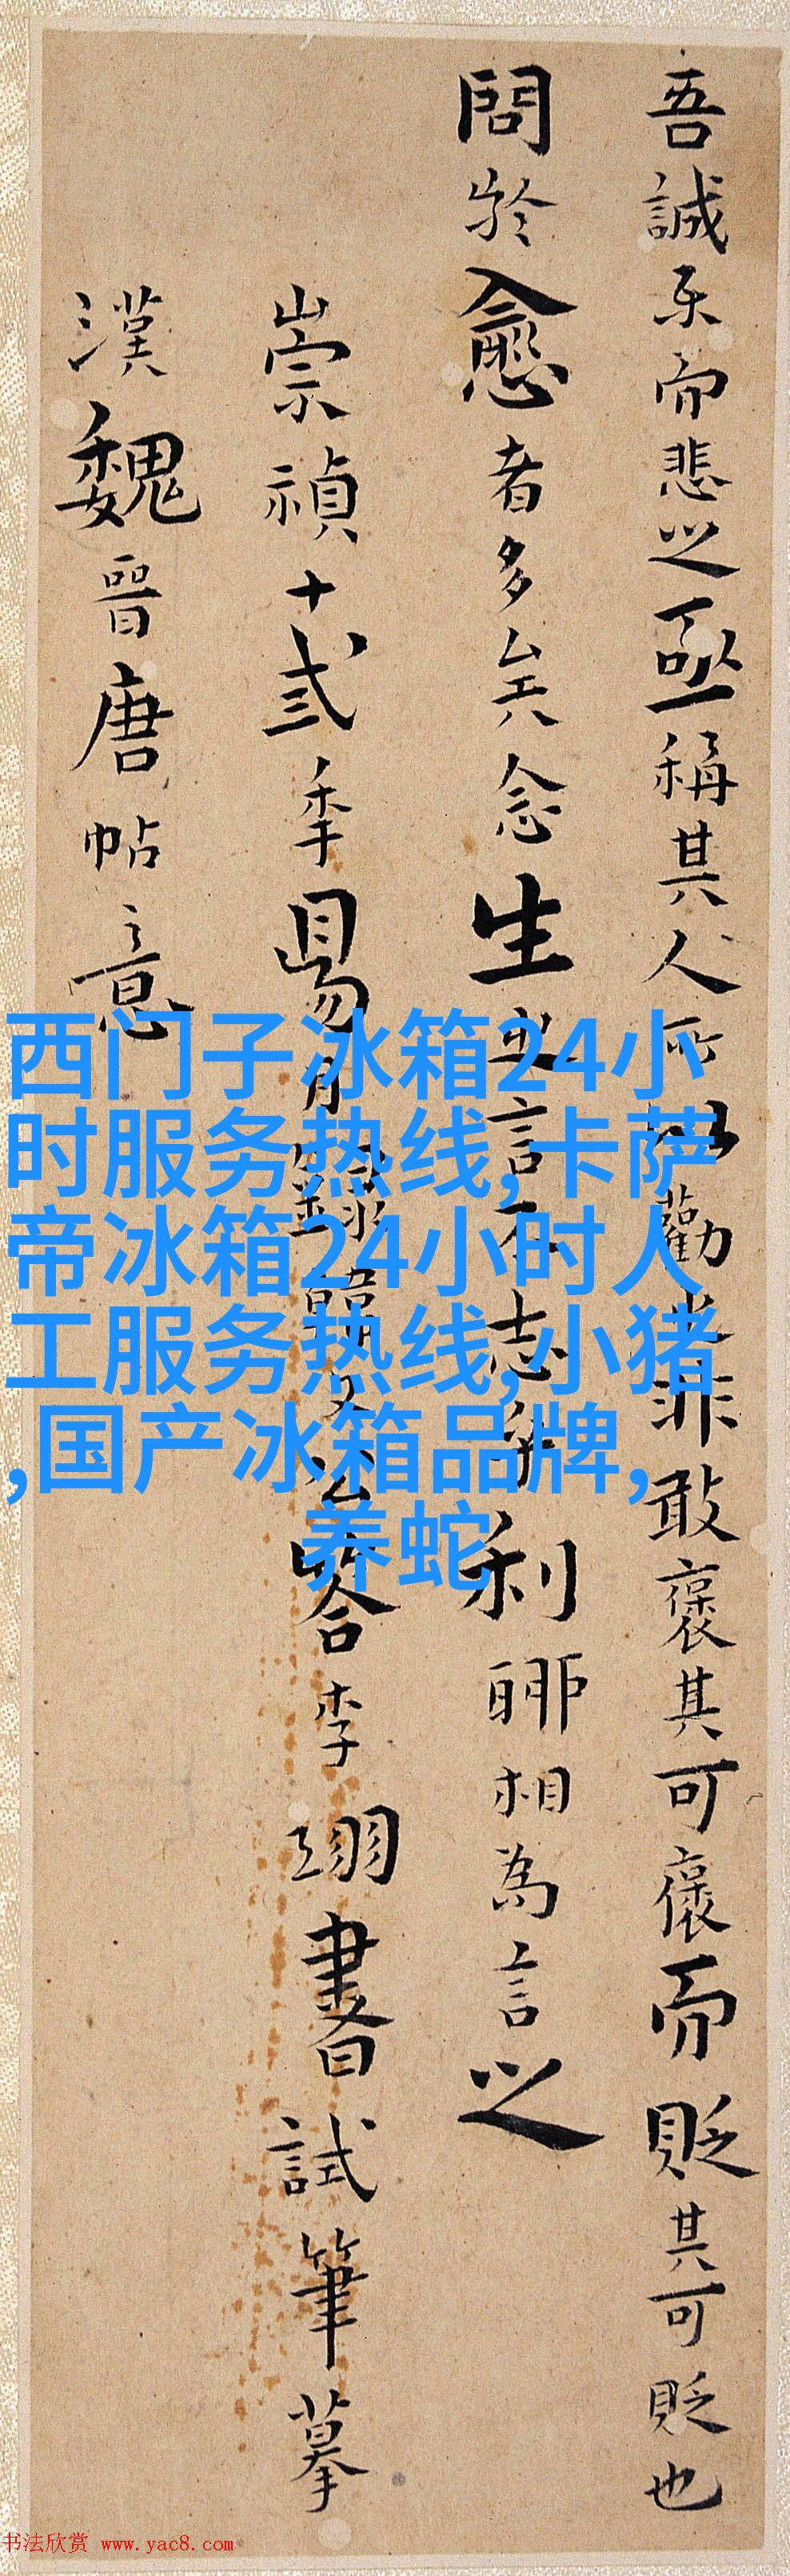 吾誠樂而悲之亟稱其人所以勸之非敢褒其可褒而貶其可貶也
問於愈者多矣念生之言不志乎利聊相為言之
崇禎十弍季易月錄韓文公答李翊書試筆摹
漢魏晉唐帖意
西门子冰箱24小
时服务热线,卡萨
帝冰箱24小时人
工服务热线,小猪
,国产冰箱品牌,
养蛇
书法欣赏 www.yac8.com